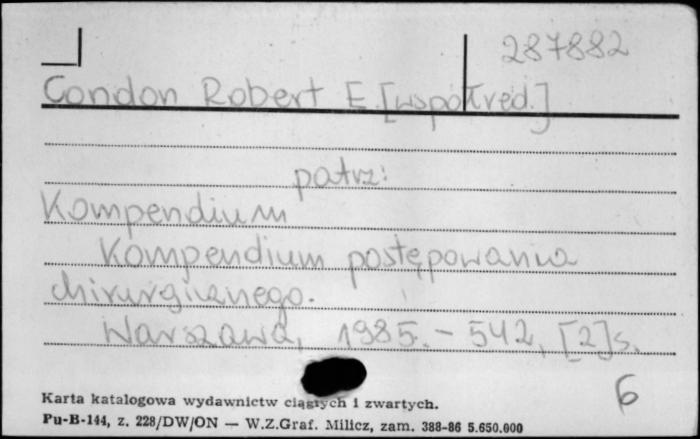 287882
Condon Robert E. [współred.]
patrz:
Kompendium
Kompendium postępowania
chirurgicznego.
Warszawa, 1985. - 542, [2]s.
6
Karta katalogowa wydawnictw ciągłych i zwartych.
Pu-B-144, z. 228/DW/ON — W.Z.Graf. Milicz, zam. 388-86 5.650.000